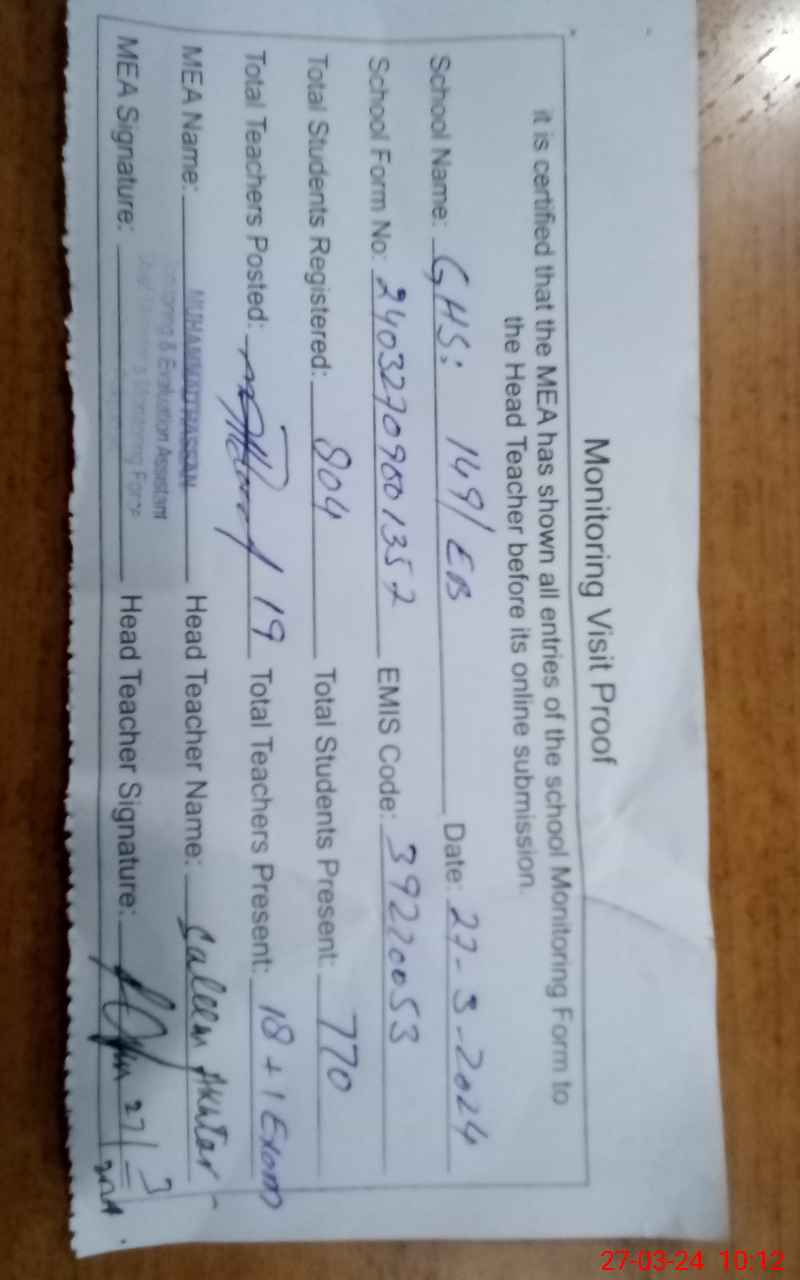 Monitoring Visit Proof
it is certified that the MEA has shown all entries of the school Monitoring Form to
the Head Teacher before its online submission.
School Name: GHS: 149/EB Date: 27-3-2024
School Form No: 24032709001357 EMIS Code: 39220053
Total Students Registered: 804 Total Students Present: 770
Total Teachers Posted: 19 Total Teachers Present: 18 + 1 Exam
MEA Name: MUHAMMAD HASSAN Head Teacher Name: Saleem Akhtar
Monitoring & Evaluation Assistant
Monitoring Force
MEA Signature: Head Teacher Signature: 27/3
2024
27-03-24 10:12